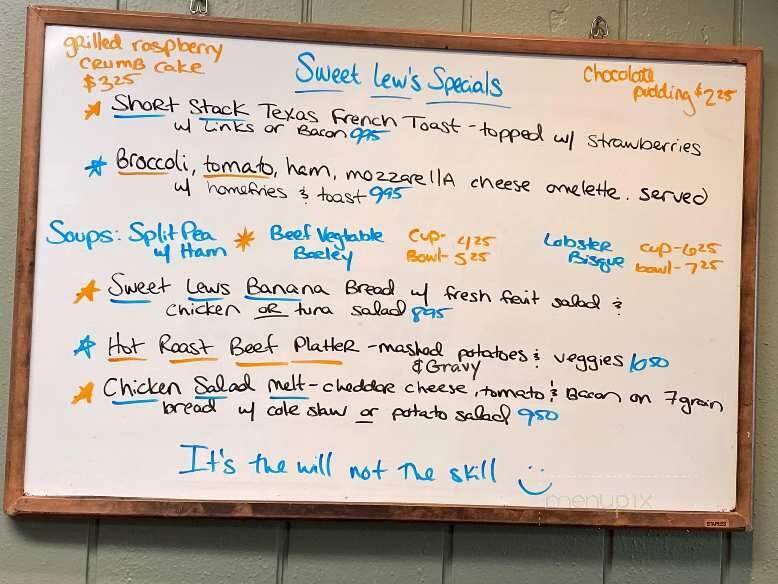 grilled raspberry
crumb cake
$3.25
Sweet Lew's Specials
Chocolate
pudding $2.25
Short Stack Texas French Toast - topped w/ strawberries
w/ Links or Bacon 995
Broccoli, tomato, ham, mozzarella cheese omelette. served
w/ homefries & toast 995
Soups: Split Pea
w/ Ham
Beef Vegtable
Barley
Cup- 425
Bowl- 525
Lobster
Bisque
cup- 625
bowl- 725
Sweet Lews Banana Bread w/ fresh fruit salad &
chicken or tuna salad 895
Hot Roast Beef Platter - mashed potatoes & veggies 1050
& Gravy
Chicken Salad melt - cheddar cheese, tomato & Bacon on 7 grain
bread w/ cole slaw or potato salad 950
It's the will not the skill
menupix
STAPLES